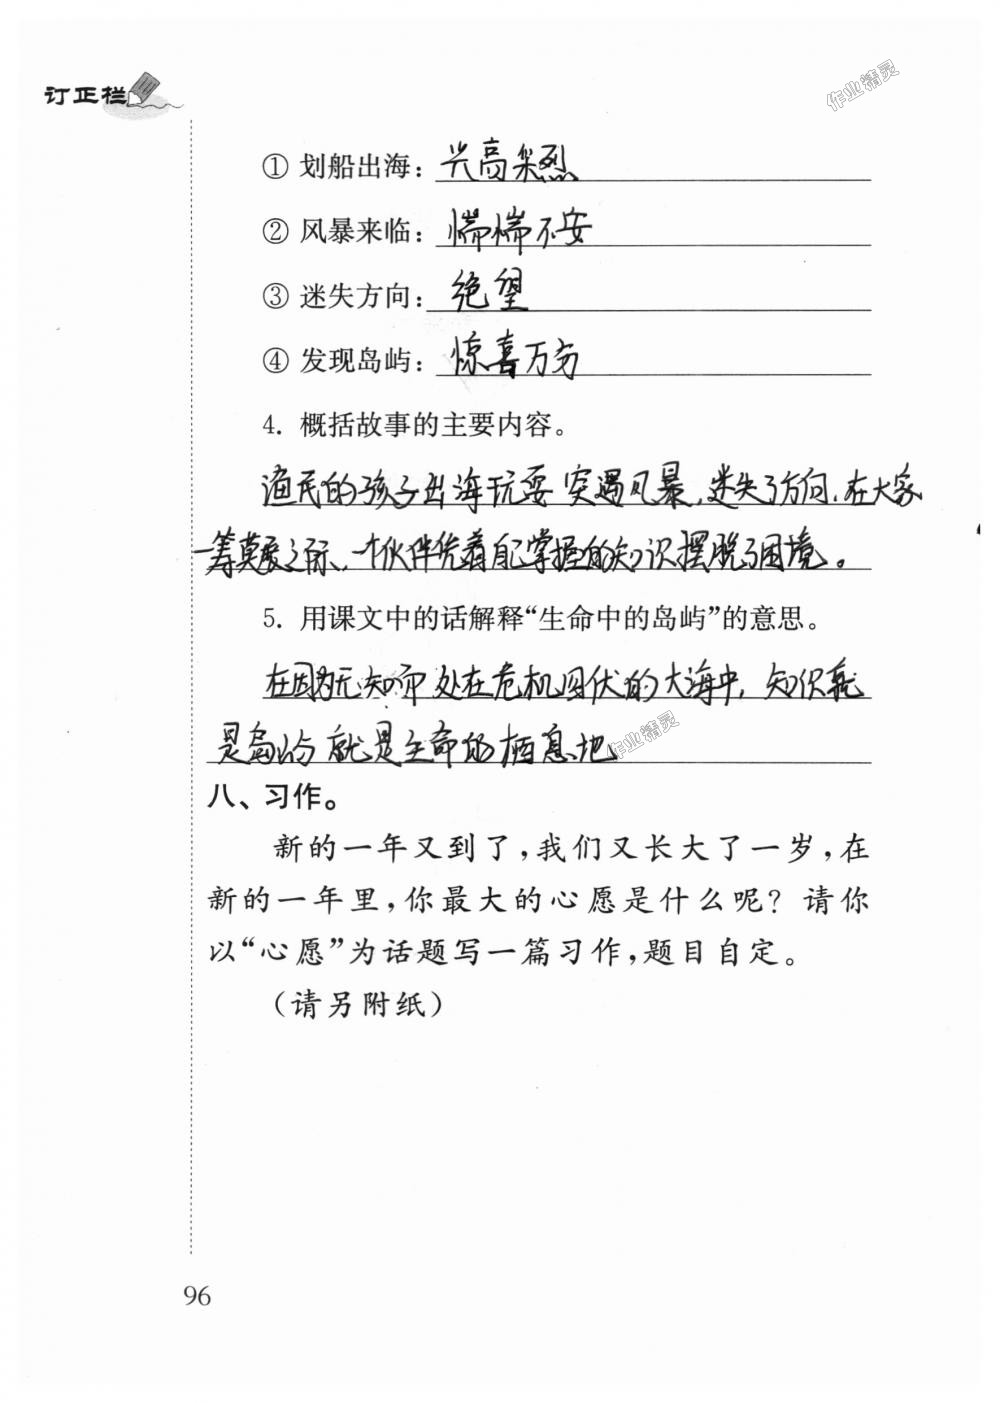 订正栏
作业精灵
① 划船出海：兴高采烈
② 风暴来临：惴惴不安
③ 迷失方向：绝望
④ 发现岛屿：惊喜万分
4. 概括故事的主要内容。
渔民的孩子出海玩耍突遇风暴，迷失了方向，在大家
一筹莫展之际，一个伙伴凭着自己掌握的知识摆脱了困境。
5. 用课文中的话解释“生命中的岛屿”的意思。
在因为无知而处在危机四伏的大海中，知识就
是岛屿 就是生命的栖息地
作业精灵
八、习作。
新的一年又到了，我们又长大了一岁，在
新的一年里，你最大的心愿是什么呢？请你
以“心愿”为话题写一篇习作，题目自定。
（请另附纸）
96